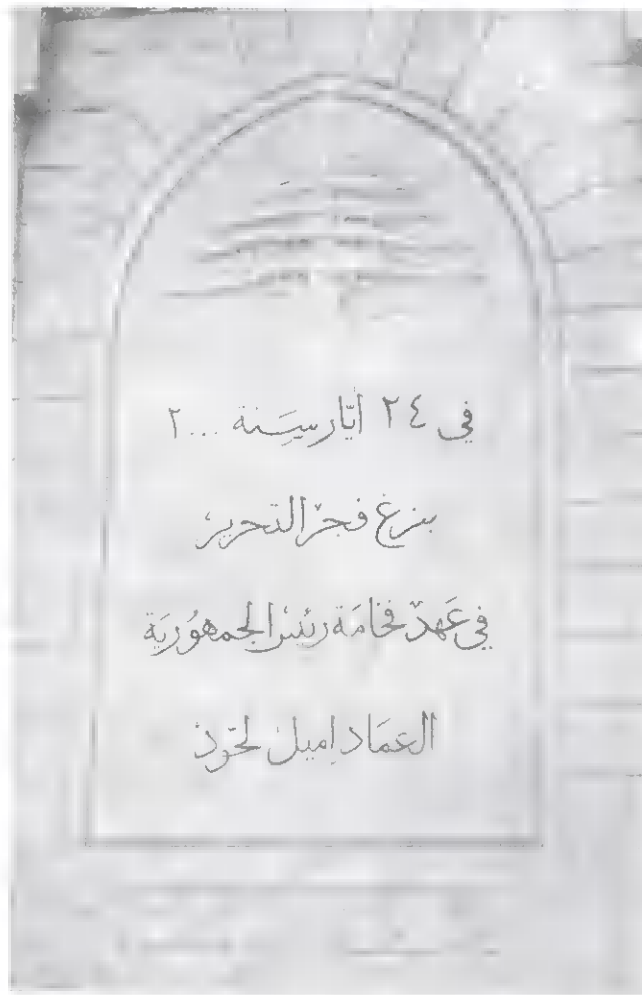 في ٢٤ أيّار سَنة ٢٠٠٠
بزغ فجر التحرير
في عَهد فخامَة رئيس الجمهُوريَة
العمَاد اميل لحّود